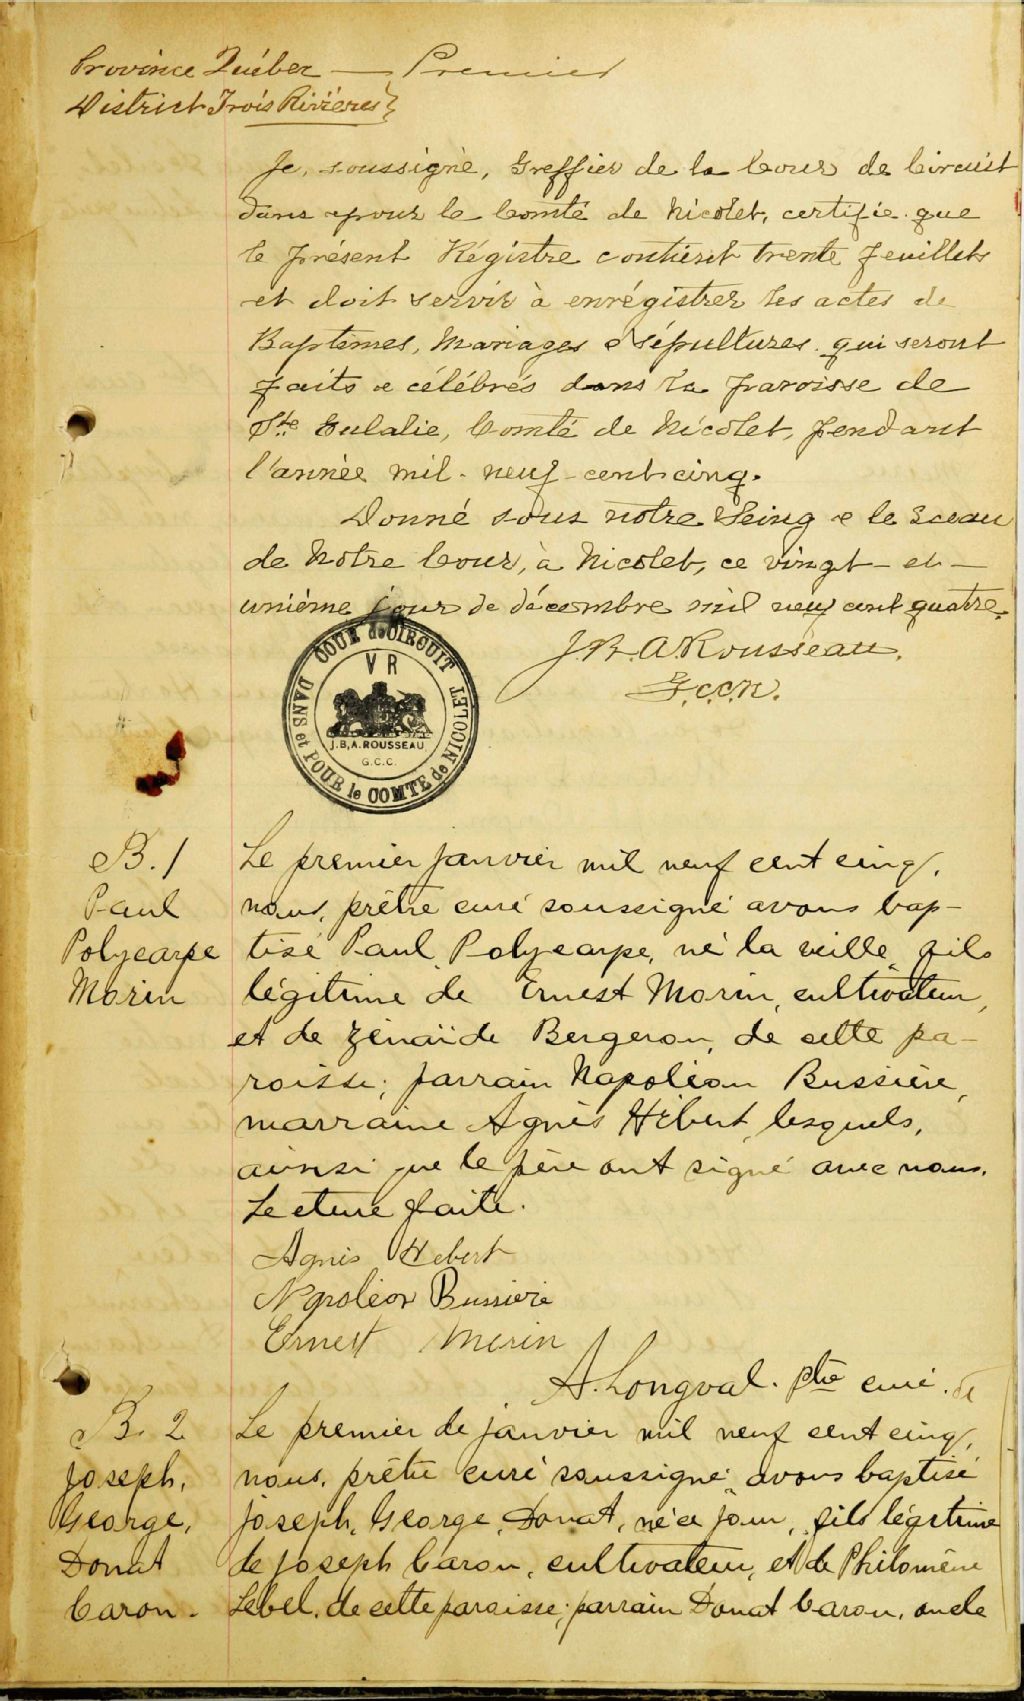 Province Québec — Premier
District Trois Rivières}
Je, soussigné, Greffier de la Cour de Circuit
dans & pour le Comté de Nicolet, certifie que
le présent Régistre contient trente feuillets
et doit servir à enrégistrer les actes de
Baptêmes, Mariages & Sépultures qui seront
faits & célébrés dans la paroisse de
Ste Eulalie, Comté de Nicolet, pendant
l'année mil-neuf-cent-cinq.
Donné sous notre Seing & le Sceau
de Notre Cour, à Nicolet, ce vingt-et-
unième jour de décembre mil neuf cent quatre.
J.B.A. Rousseau.
G.C.C.N.
COUR de CIRCUIT
DANS et POUR le COMTE de NICOLET
V R
J.B.A. ROUSSEAU
G.C.C.
B. 1
Paul
Polycarpe
Morin
Le premier janvier mil neuf cent cinq,
nous, prêtre curé soussigné avons bap-
tisé Paul Polycarpe, né la veille, fils
légitime de Ernest Morin, cultivateur,
et de Zénaïde Bergeron, de cette pa-
roisse; parrain Napoléon Bussière,
marraine Agnès Hébert, lesquels,
ainsi que le père ont signé avec nous.
Lecture faite.
Agnis Hebert
Npoléon Bussiere
Ernest Morin
A. Longval. ptre curé.
B. 2
Joseph,
George,
Donat
Caron.
Le premier de janvier mil neuf cent cinq,
nous, prêtre curé soussigné avons baptisé
Joseph, George, Donat, né ce jour, fils légitime
de Joseph Caron, cultivateur, et de Philomène
Lebel, de cette paroisse; parrain Donat Caron, oncle